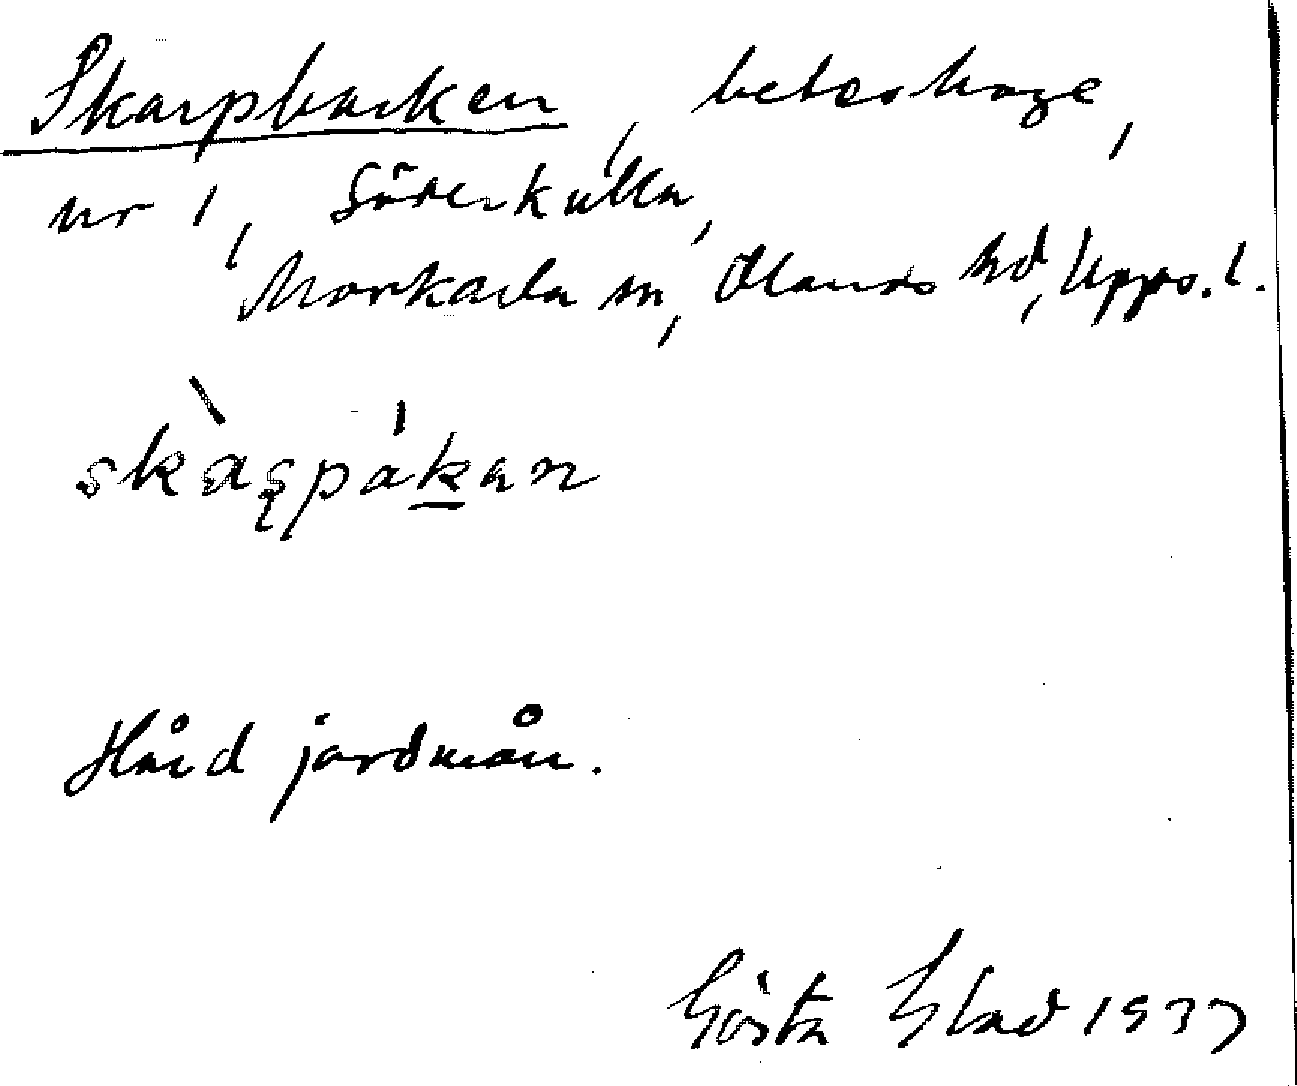 Skarpbacken, beteshage,
nr 1, Söderkulla,
Morkarla sn, Olands hd, Upps. l.
skàspákan
Hård jordmån.
Gösta Blad 1937